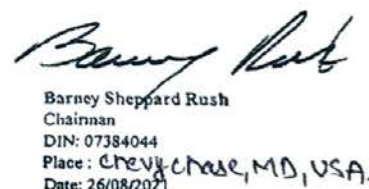 Barney Rush
Barney Sheppard Rush
Chairman
DIN: 07384044
Place : Chevy Chase, MD, USA.
Date: 26/08/2021